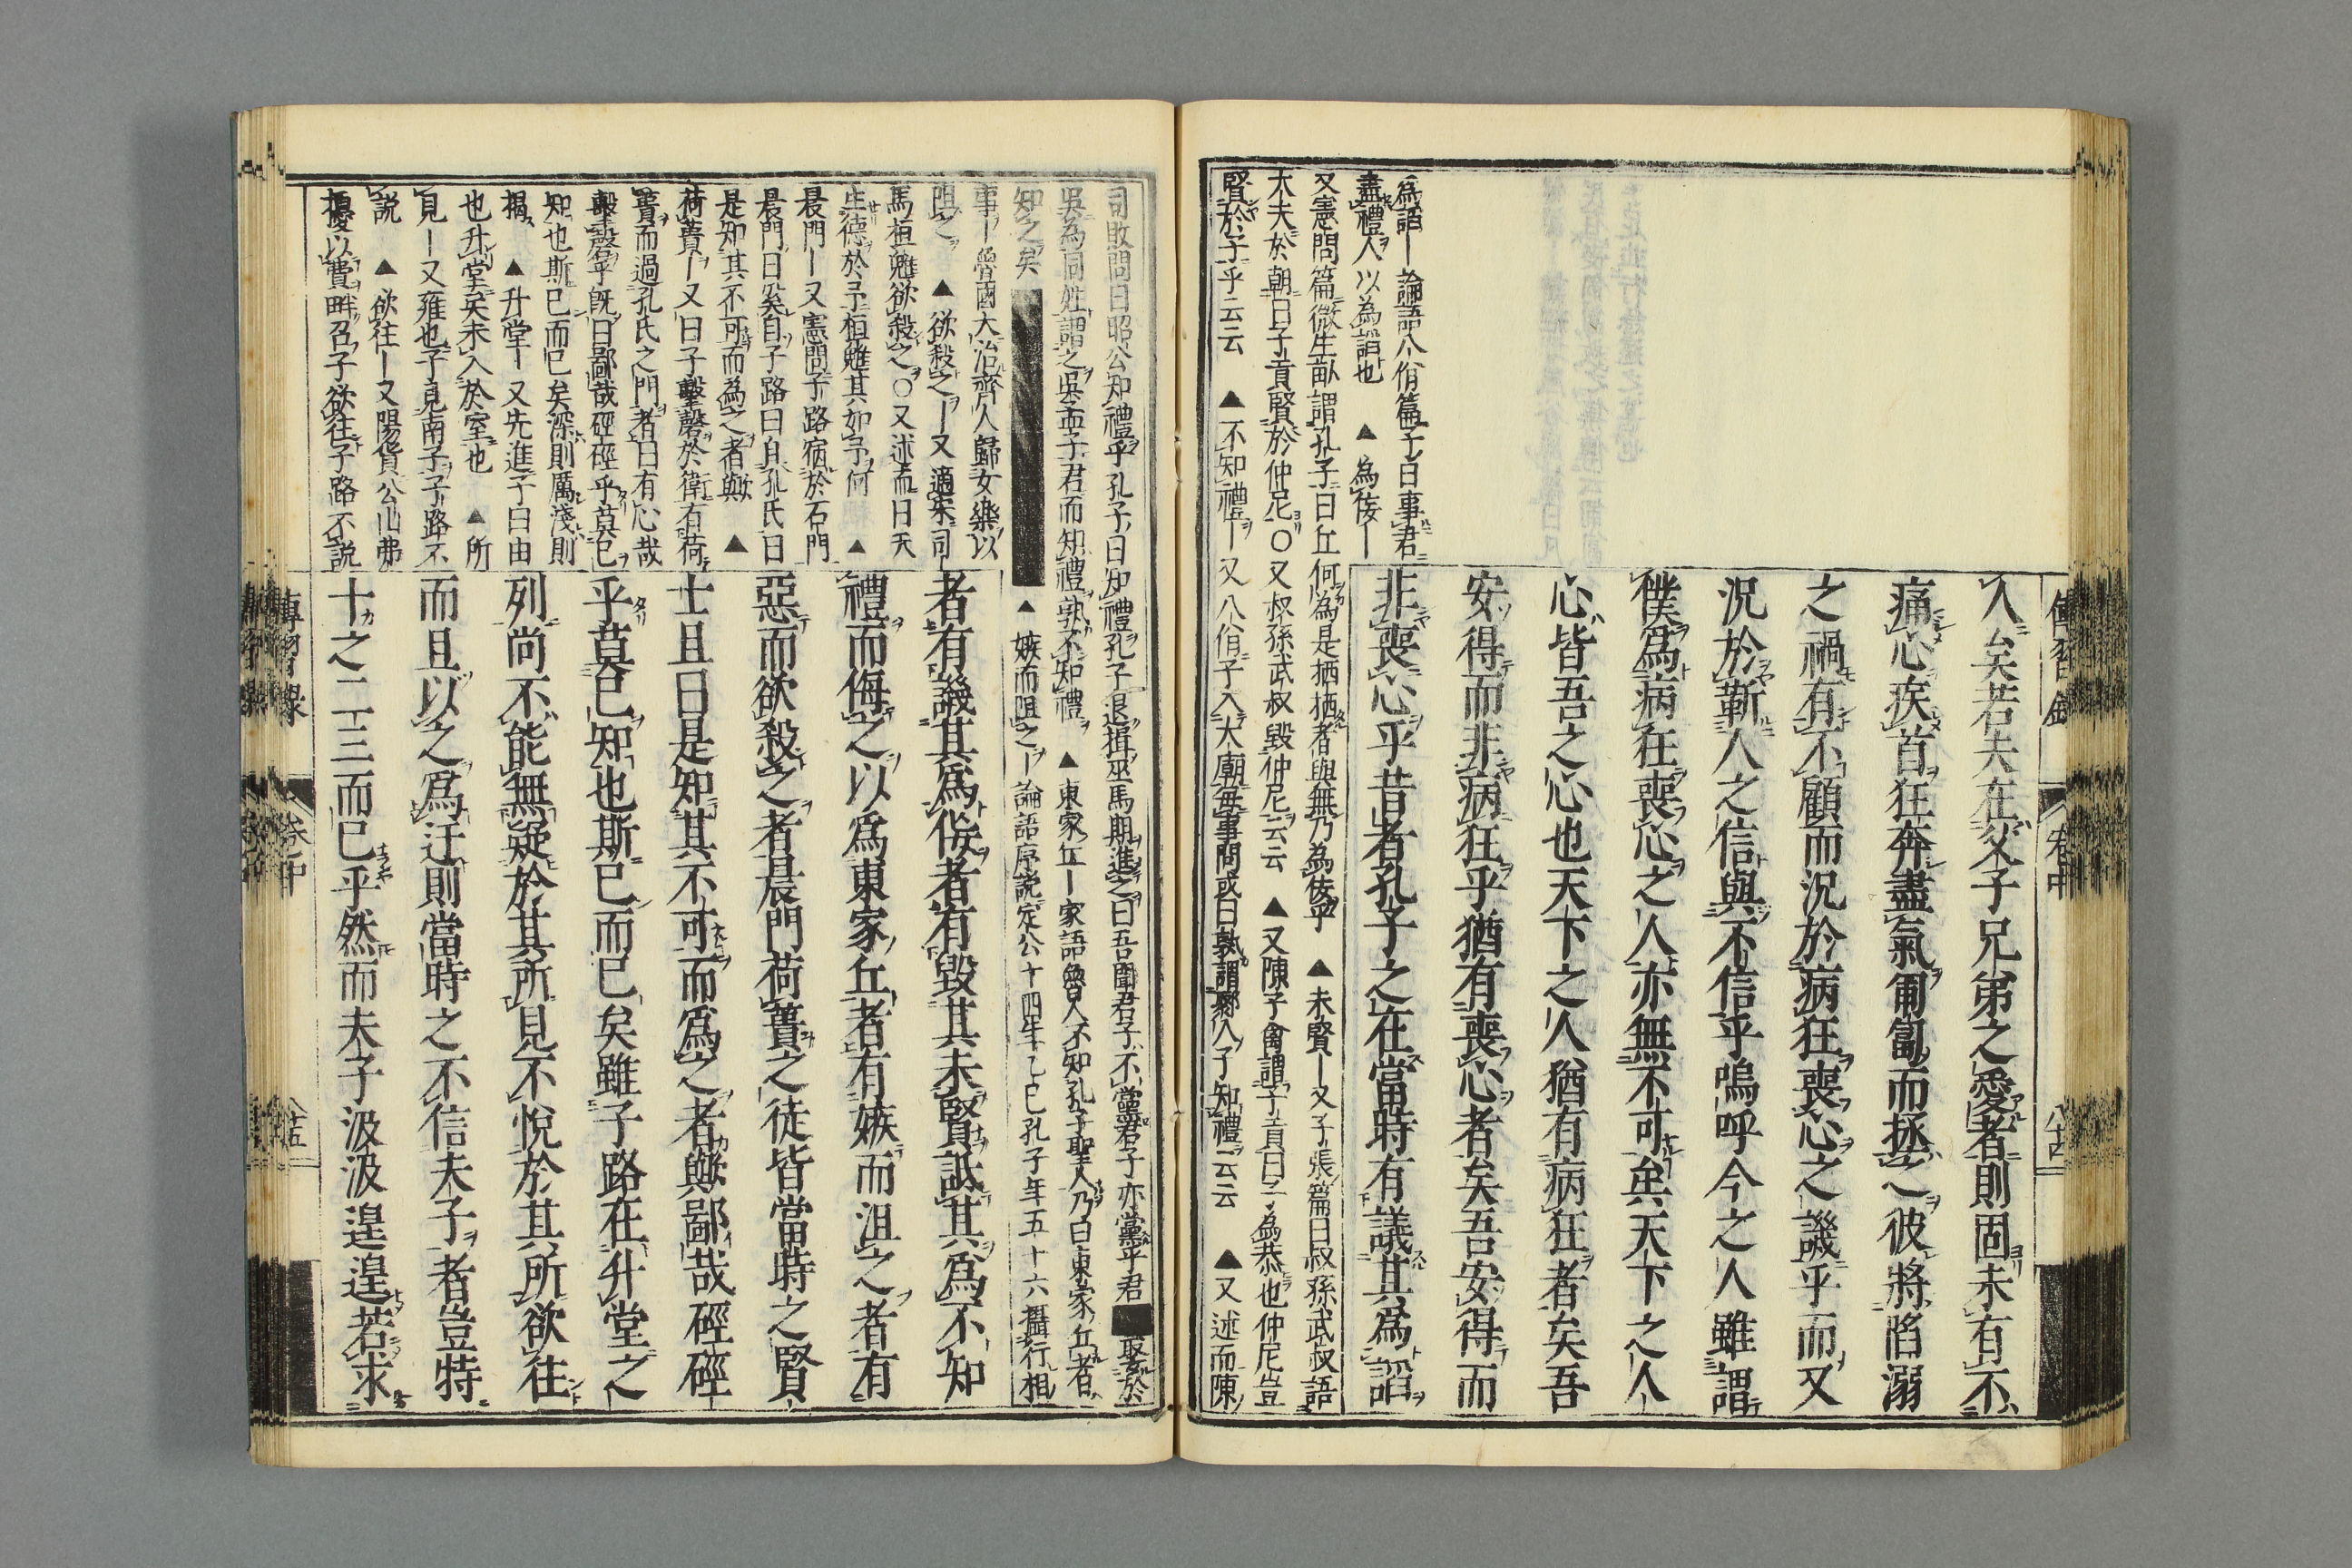 傳習錄
卷中
八十四
人矣若夫在父子兄弟之愛者則固未有不
痛心疾首狂奔盡氣匍匐而拯之彼將陷溺
之禍有不顧而況於病狂喪心之譏乎而又
況於蘄人之信與不信乎嗚呼今之人雖謂
僕爲病狂喪心之人亦無不可矣天下之人
心皆吾之心也天下之人猶有病狂者矣吾
安得而非病狂乎猶有喪心者矣吾安得而
非喪心乎昔者孔子之在當時有議其爲諂
為諂―論語八佾篇子曰事君
盡禮人以為諂也 ▲為佞―
又憲問篇微生畝謂孔子曰丘何為是栖栖者與無乃為佞乎 ▲未賢―又子張篇曰叔孫武叔語
大夫於朝曰子貢賢於仲尼〇又叔孫武叔毀仲尼云云 ▲又陳子禽謂子貢曰子為恭也仲尼豈
賢於子乎云云 ▲不知禮―又八佾子入大廟每事問或曰孰謂鄹人子知禮云云 ▲又述而陳
司敗問曰昭公知禮乎孔子曰知禮孔子退揖巫馬期進之曰吾聞君子不黨君子亦黨乎君 娶於
吳為同姓謂之吳孟子君而知禮孰不知禮 ▲東家丘―家語魯人不知孔子聖人乃曰東家丘者
知之矣 ▲嫉而阻之―論語序說定公十四年乙巳孔子年五十六攝行相
事―魯國大治齊人歸女樂以
阻之 ▲欲殺之―又適宋司
馬桓魋欲殺之〇又述而曰天
生德於予桓魋其如予何 ▲
晨門―又憲問子路宿於石門
晨門曰奚自子路曰自孔氏曰
是知其不可而為之者與 ▲
荷蕢―又曰子擊磬於衛有荷
蕢而過孔氏之門者曰有心哉
擊磬乎既曰鄙哉硜硜乎莫己
知也斯已而已矣深則厲淺則
揭 ▲升堂―又先進子曰由
也升堂矣未入於室也 ▲所
見―又雍也子見南子子路不
説 ▲欲往―又陽貨公山弗
擾以費畔召子欲往子路不説
者有譏其爲佞者有毀其未賢詆其爲不知
禮而侮之以爲東家丘者有嫉而沮之者有
惡而欲殺之者晨門荷蕢之徒皆當時之賢
士且曰是知其不可而爲之者與鄙哉硜硜
乎莫己知也斯已而已矣雖子路在升堂之
列尚不能無疑於其所見不悅於其所欲往
而且以之爲迂則當時之不信夫子者豈特
十之二三而已乎然而夫子汲汲遑遑若求
傳習錄
卷之中
八十五